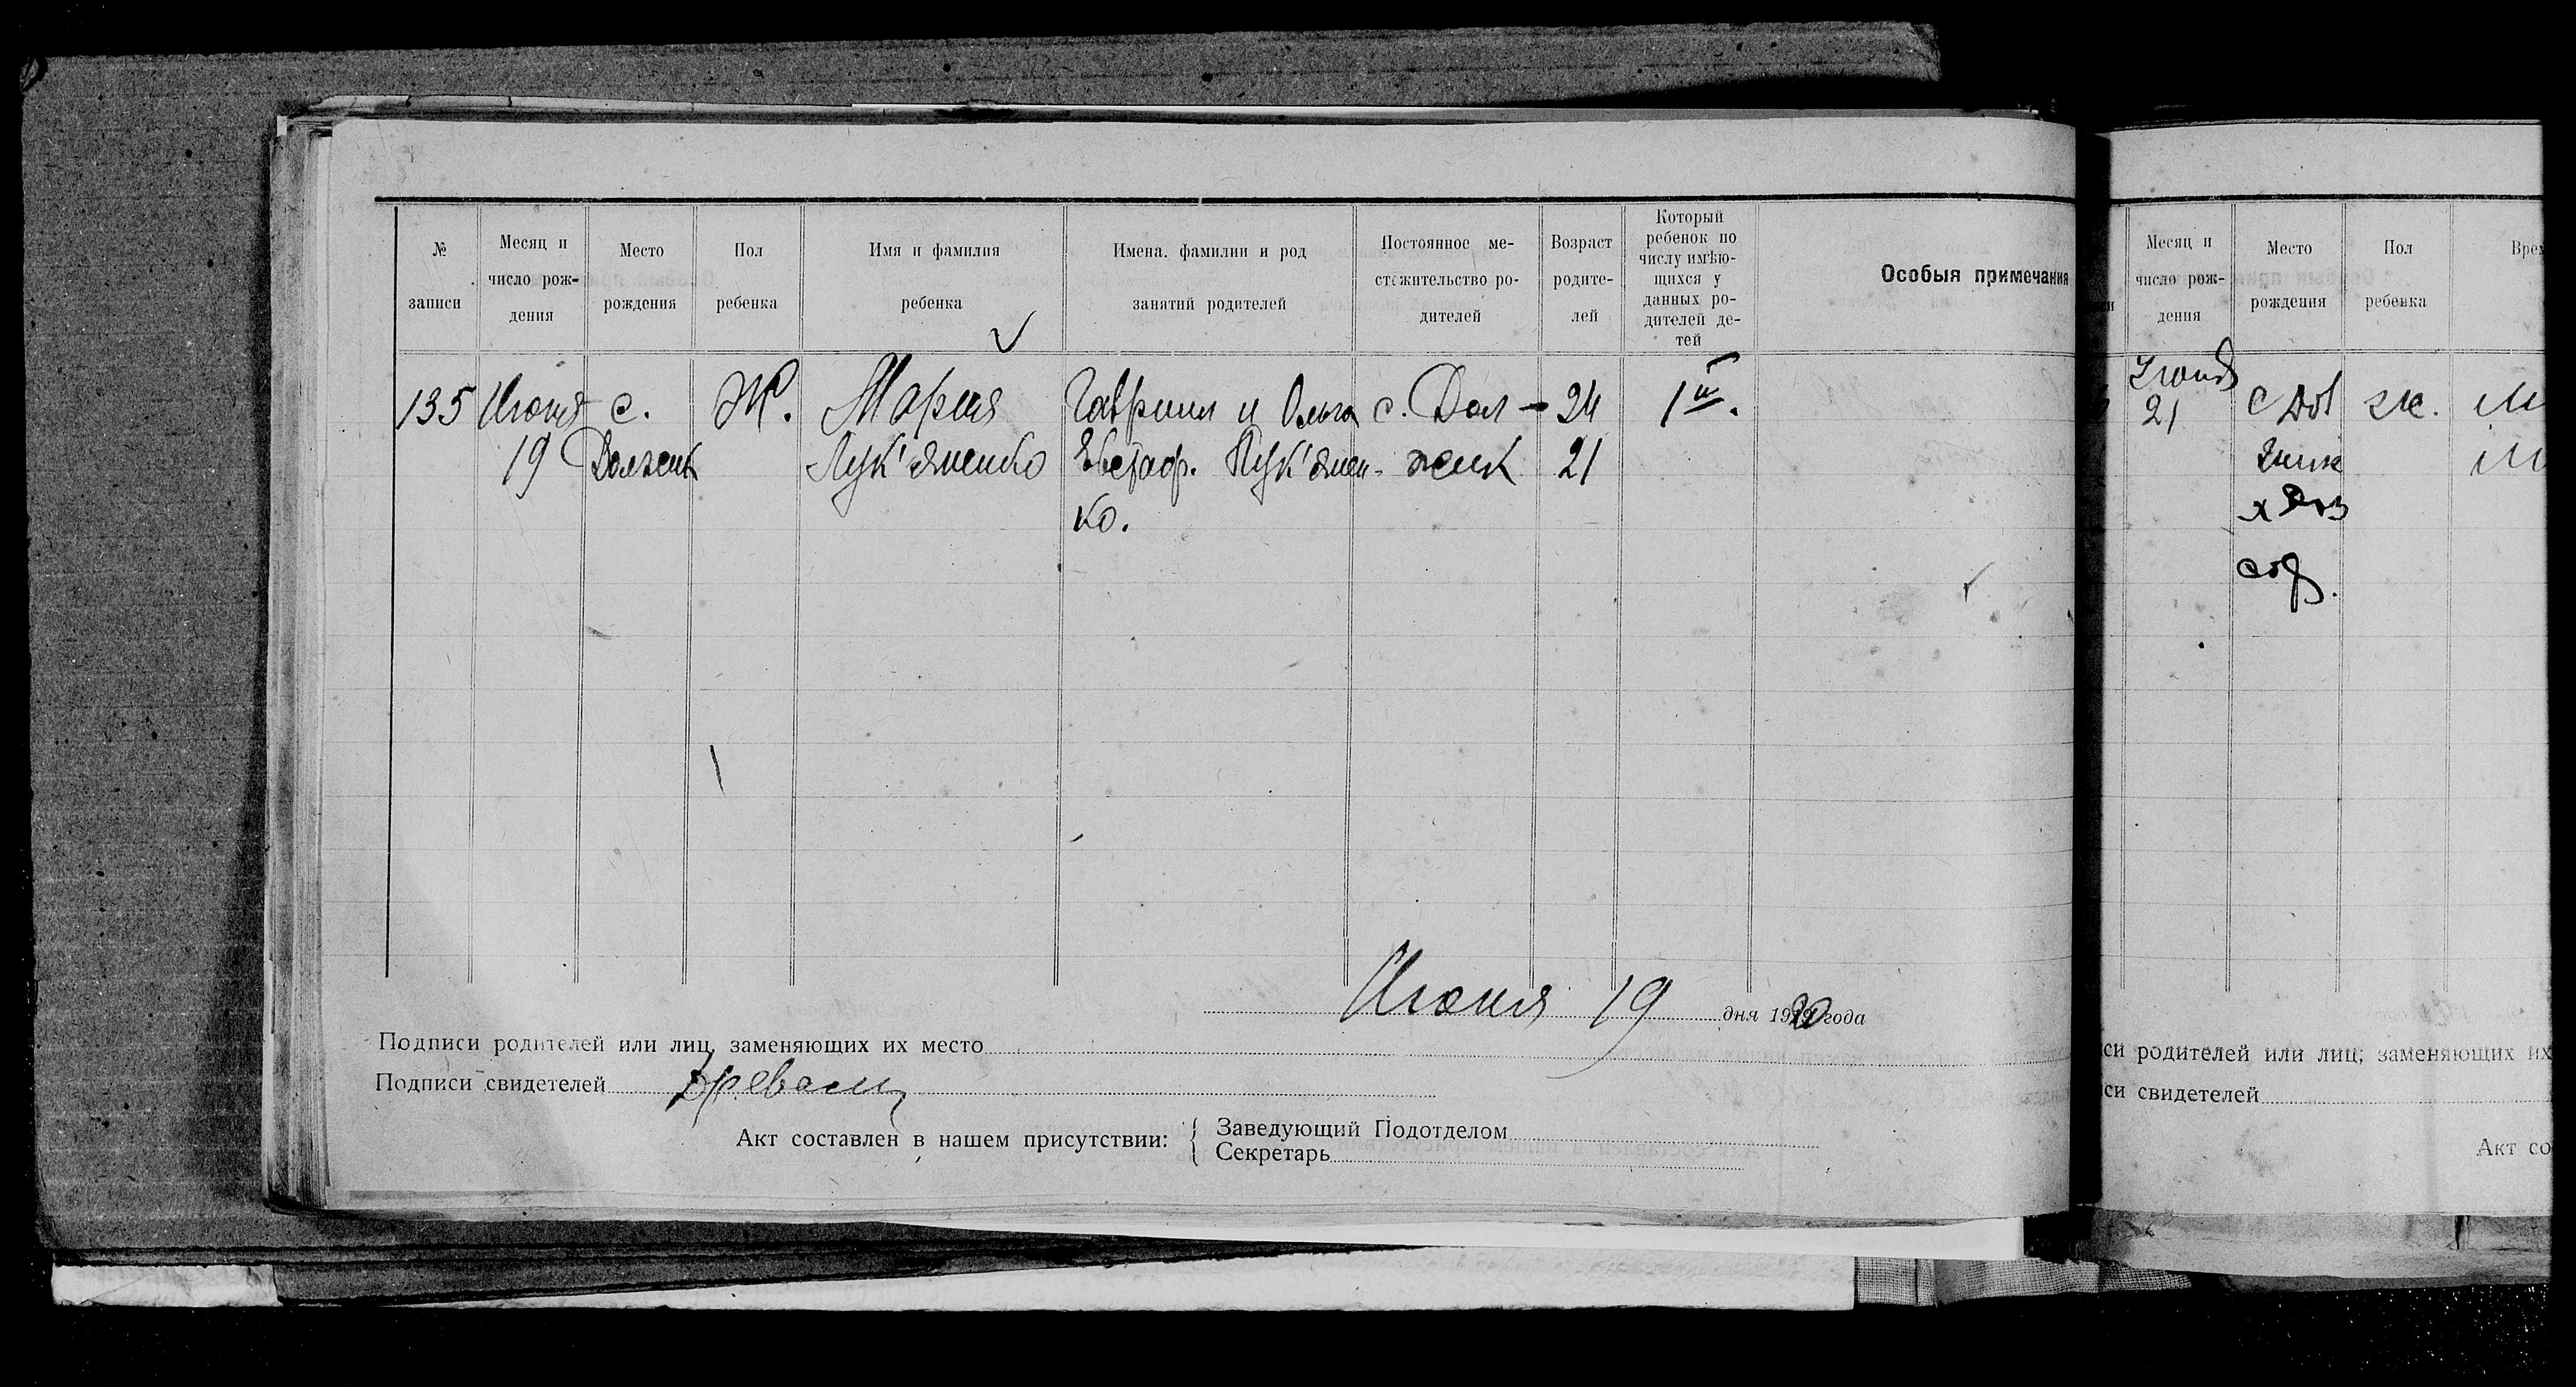 № записи
Месяц и число рож-дения
Место рождения
Пол ребенка
Имя и фамилия ребенка
Имена, фамилии и род занятий родителей
Постоянное ме-стожительство ро-дителей
Возраст родите-лей
Который ребенок по числу имѣю-щихся у данных ро-дителей де-тей
Особыя примечания
135 Июня с. Ж. Мария Гавриил и Ольга с. Дол- 24 1й.
19 Должик Лук'яненко Евстаф. Лук'янен- жик 21
ко.
Июня 19 дня 1920 года
Подписи родителей или лиц, заменяющих их место
Подписи свидетелей
Акт составлен в нашем присутствии:
Заведующий Подотделом
Секретарь
Месяц и число рож-дения
Место рождения
Пол ребенка
21 ж.
родителей или лиц, заменяющих их
свидетелей
Акт со